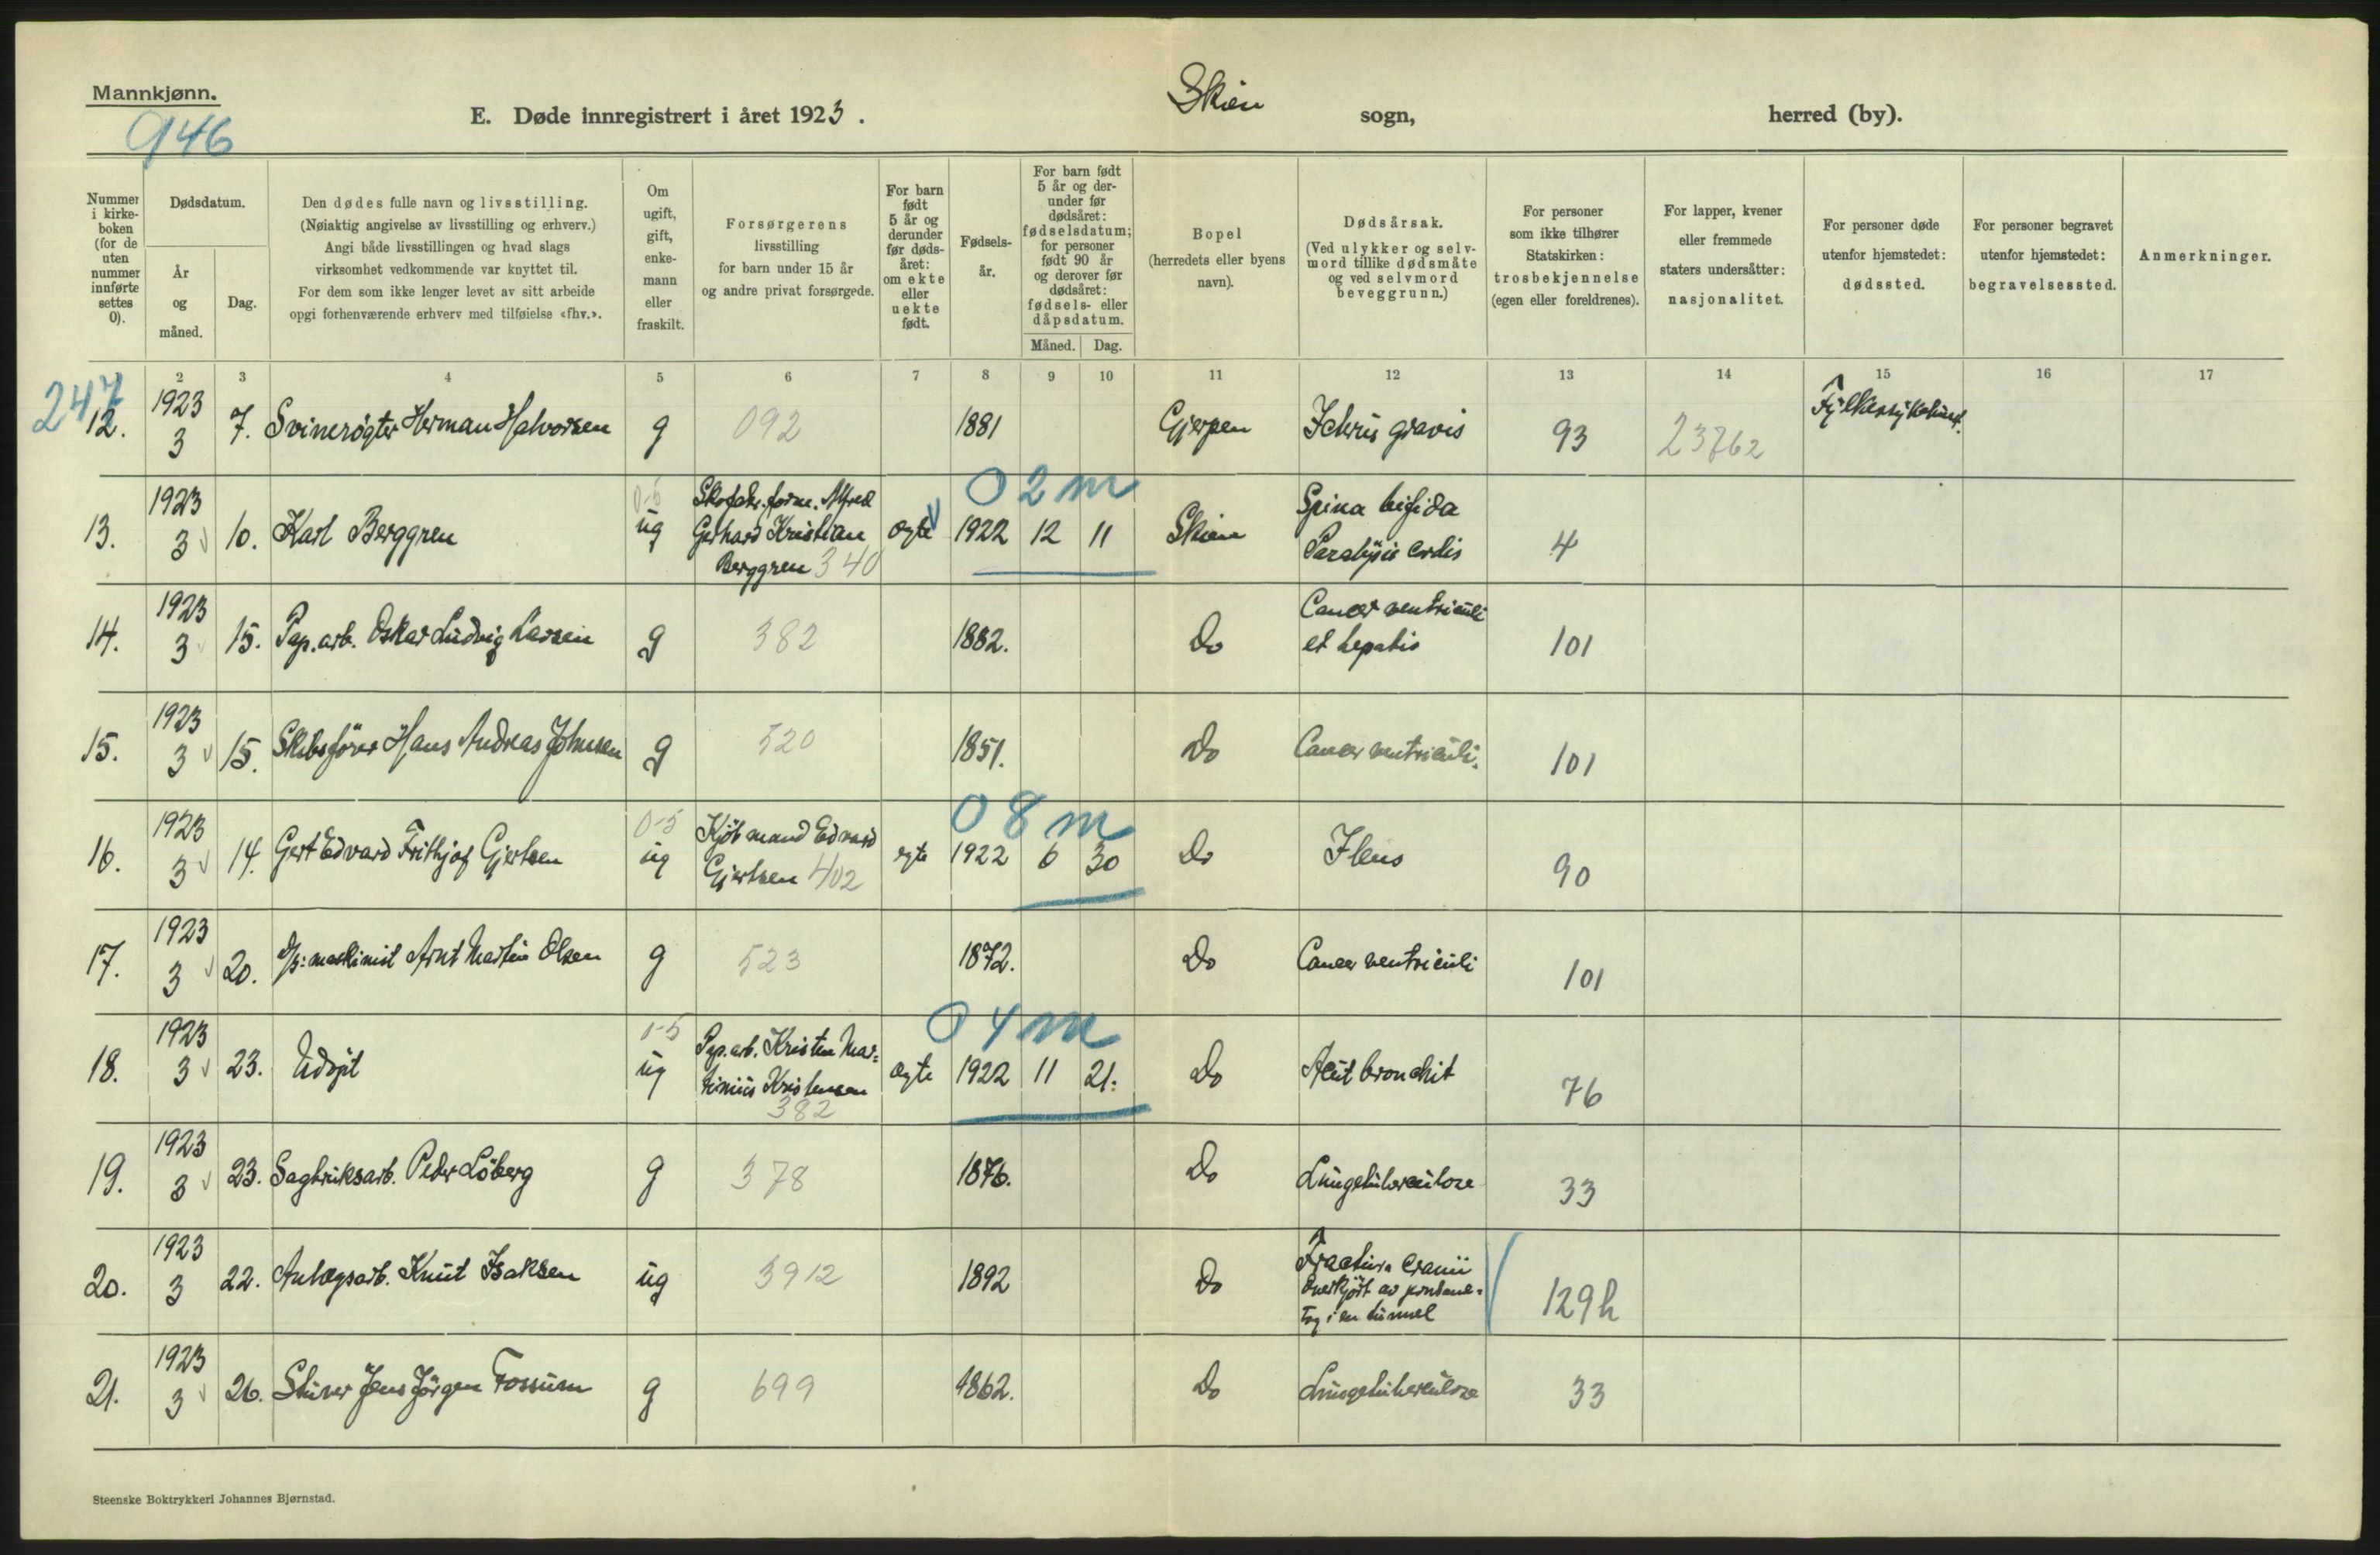 Mannkjønn.
946
E. Døde innregistrert i året 1923.
Skien
sogn,
herred (by).
Nummer i kirkeboken (for de uten nummer innførte settes 0).
Dødsdatum.
År og måned.
Dag.
Den dødes fulle navn og livsstilling.
(Nøiaktig angivelse av livsstilling og erhverv.)
Angi både livsstillingen og hvad slags
virksomhet vedkommende var knyttet til.
For dem som ikke lenger levet av sitt arbeide
opgi forhenværende erhverv med tilføielse «fhv.».
Om ugift, gift, enkemann eller fraskilt.
Forsørgerens
livsstilling
for barn under 15 år
og andre privat forsørgede.
For barn født 5 år og derunder før dødsåret: om ekte eller uekte født.
Fødselsår.
For barn født 5 år og derunder før dødsåret: fødselsdatum; for personer født 90 år og derover før dødsåret: fødsels- eller dåpsdatum.
Måned. Dag.
Bopel
(herredets eller byens
navn).
Dødsårsak.
(Ved ulykker og selvmord tillike dødsmåte
og ved selvmord
beveggrunn.)
For personer
som ikke tilhører
Statskirken:
trosbekjennelse
(egen eller foreldrenes).
For lapper, kvener
eller fremmede
staters undersåtter:
nasjonalitet.
For personer døde
utenfor hjemstedet:
dødssted.
For personer begravet
utenfor hjemstedet:
begravelsessted.
Anmerkninger.
2 3 4 5 6 7 8 9 10 11 12 13 14 15 16 17
247
12. 1923 3 7. Svinerøgter Herman Halvorsen g 092 1881 Gjerpen Icterus gravis 93 23762 Fylkessykehuset.
13. 1923 3 10. Karl Berggren 0-5 ug Skofabr. form. Alfred Gerhard Kristian Berggren 340 ægte 02m 1922 12 11 Skien Spina bifida Paralysis cordis 4
14. 1923 3 15. Pap.arb. Oskar Ludvig Larsen g 382 1882. Do Cancer ventriculi et hepatis 101
15. 1923 3 15. Skibsfører Hans Andreas Johnsen g 520 1851. Do Cancer ventriculi. 101
16. 1923 3 14. Gert Edvard Frithjof Gjertsen 0-5 ug Kjøbmand Edvard Gjertsen 402 egte 08m 1922 6 30 Do Ileus 90
17. 1923 3 20. maskinist Arnt Martin Olsen g 523 1872. Do Cancer ventriculi 101
18. 1923 3 23. Udøpt 0-5 ug Pap.arb. Kristen Martinius Kristensen 382 ægte 04m 1922 11 21. Do Acut bronchit 76
19. 1923 3 23. Sagbruksarb. Peder Löberg g 378 1876. Do Lungetuberculose 33
20. 1923 3 22. Anlægsarb. Knut Isaksen ug 3912 1892 Do Fractura cranii Overkjørt av tog i en tunnel 129h
21. 1923 3 26. Stuver Jens Jørgen Fossum g 699 1862. Do Lungetuberculose 33
Steenske Boktrykkeri Johannes Bjørnstad.